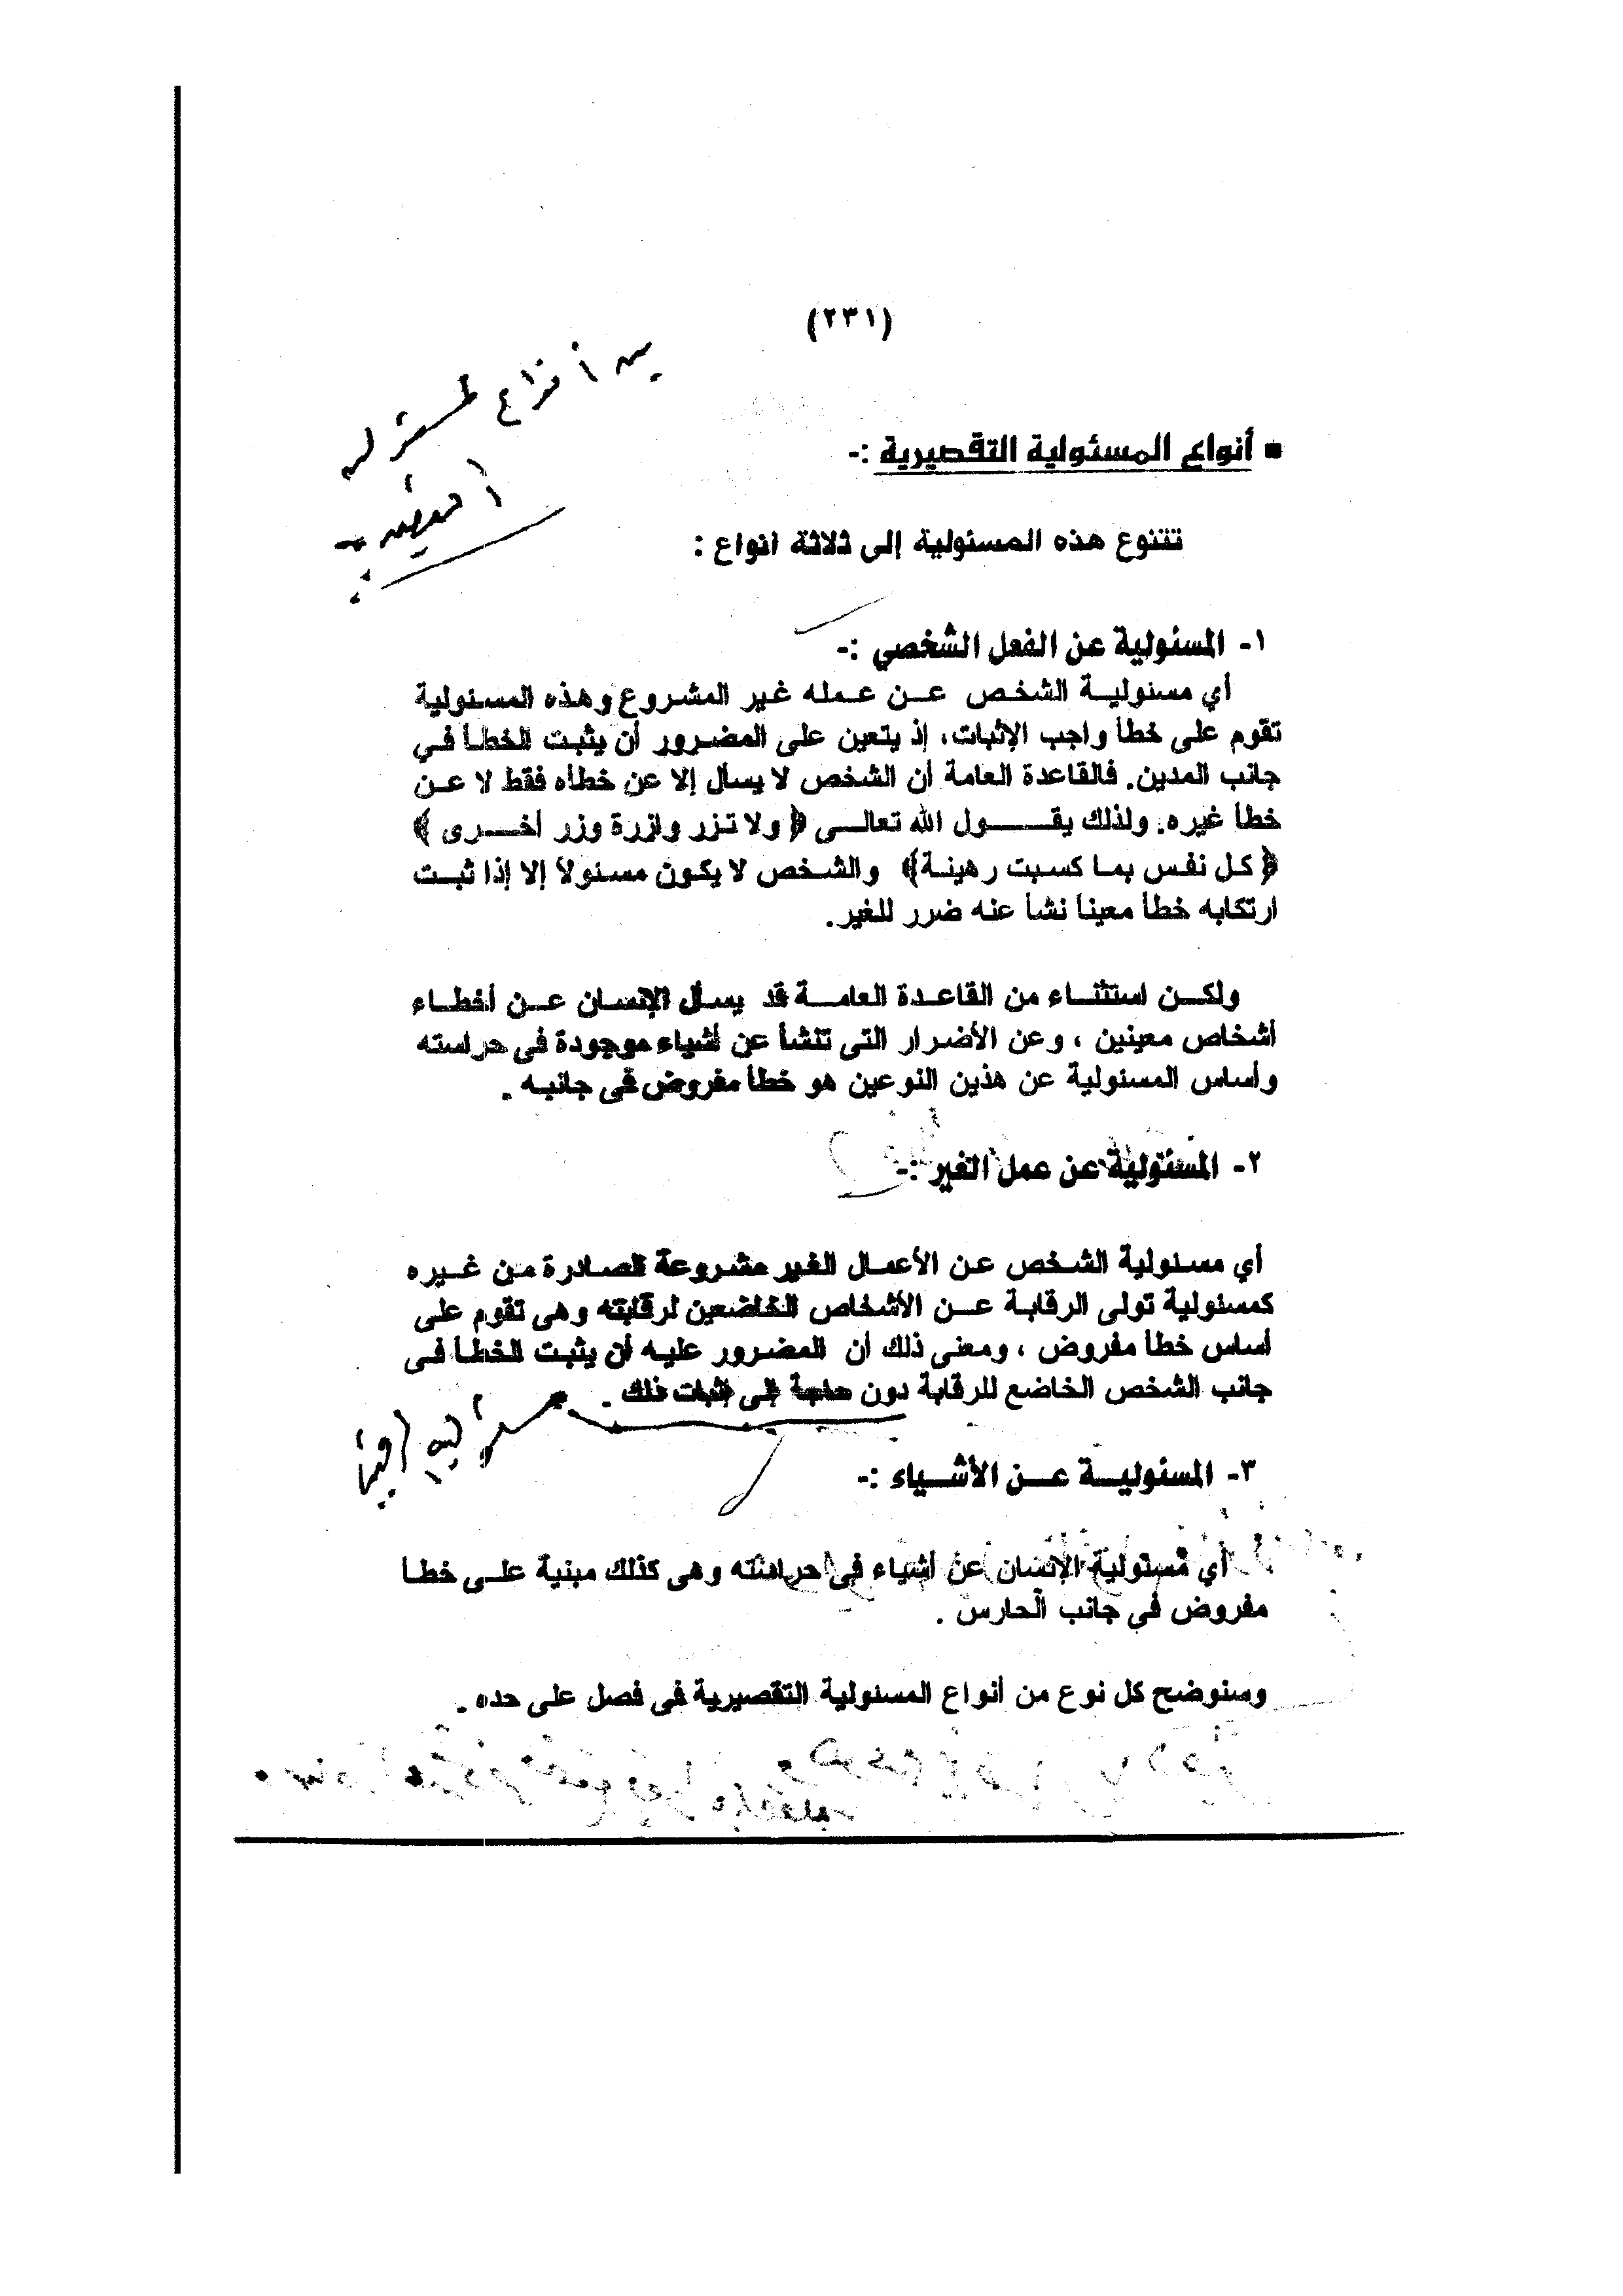 (٢٣١)
▪ أنواع المسئولية التقصيرية :-
تتنوع هذه المسئولية إلى ثلاثة أنواع :
١- المسئولية عن الفعل الشخصي :-
أي مسئولية الشخص عن عمله غير المشروع وهذه المسئولية
تقوم على خطأ واجب الإثبات، إذ يتعين على المضرور أن يثبت الخطأ في
جانب المدين. فالقاعدة العامة أن الشخص لا يسأل إلا عن خطأه فقط لا عن
خطأ غيره. ولذلك يقول الله تعالى ﴿ ولا تزر وازرة وزر أخرى ﴾
﴿ كل نفس بما كسبت رهينة﴾ والشخص لا يكون مسئولاً إلا إذا ثبت
ارتكابه خطأ معينا نشأ عنه ضرر للغير.
ولكن استثناء من القاعدة العامة قد يسأل الإنسان عن أخطاء
أشخاص معينين ، وعن الأضرار التى تنشأ عن أشياء موجودة فى حراسته
وأساس المسئولية عن هذين النوعين هو خطأ مفروض فى جانبه .
٢- المسئولية عن عمل الغير :-
أي مسئولية الشخص عن الأعمال الغير مشروعة الصادرة من غيره
كمسئولية تولى الرقابة عن الأشخاص الخاضعين لرقابته وهى تقوم على
أساس خطأ مفروض ، ومعنى ذلك أن المضرور عليه أن يثبت الخطأ فى
جانب الشخص الخاضع للرقابة دون حاجة إلى إثبات ذلك .
٣- المسئولية عن الأشياء :-
أي مسئولية الإنسان عن أشياء فى حراسته وهى كذلك مبنية على خطأ
مفروض فى جانب الحارس .
وسنوضح كل نوع من أنواع المسئولية التقصيرية فى فصل على حده .